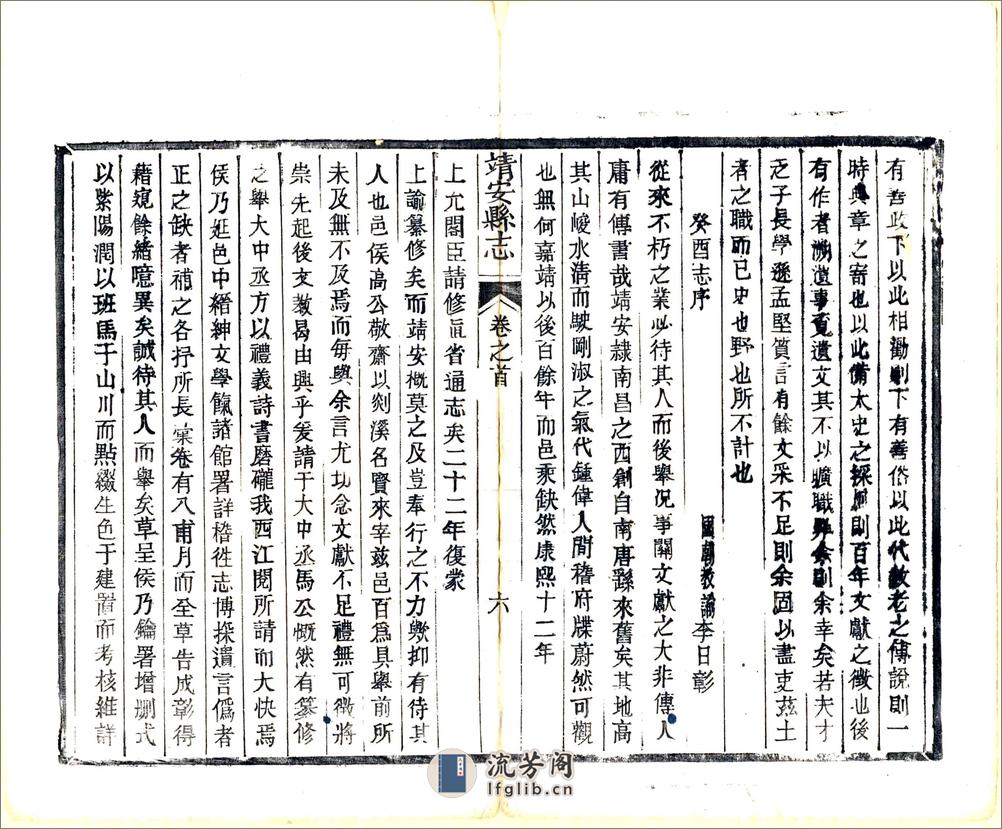 有善政下以此相勸則下有善俗以此代敎老之傳說則一
時典章之寄也以此備太史之採風則百年文獻之徵也後
有作者溯遺事覓遺文其不以曠職罪余則余幸矣若夫才
乏子長學遜孟堅質言有餘文采不足則余固以盡吏茲土
者之職而已史也野也所不計也
癸酉志序
國朝敎諭李日彰
從來不朽之業必待其人而後舉況事關文獻之大非傳人
庸有傳書哉靖安隸南昌之西創自南唐繇來舊矣其地高
其山峻水淸而駛剛淑之氣代鍾偉人間稽府牒蔚然可觀
也無何嘉靖以後百餘年而邑乘缺然康熙十二年
靖安縣志
卷之首
六
上允閣臣請修直省通志矣二十二年復蒙
上諭纂修矣而靖安槪莫之及豈奉行之不力歟抑有待其
人也邑侯高公敬齋以剡溪名賢來宰茲邑百爲具舉前所
未及無不及焉而每與余言尤切念文獻不足禮無可徵將
崇先起後文敎曷由興乎爰請于大中丞馬公慨然有纂修
之舉大中丞方以禮義詩書磨礲我西江閱所請而大快焉
侯乃延邑中縉紳文學餼諸館署詳稽徃志博採遺言僞者
正之缺者補之各抒所長彙卷有八甫月而全草告成彰得
藉窺餘緖噫異矣誠待其人而舉矣草呈侯乃鑰署增删式
以紫陽潤以班馬于山川而點綴生色于建置而考核維詳
流芳阁
lfglib.cn